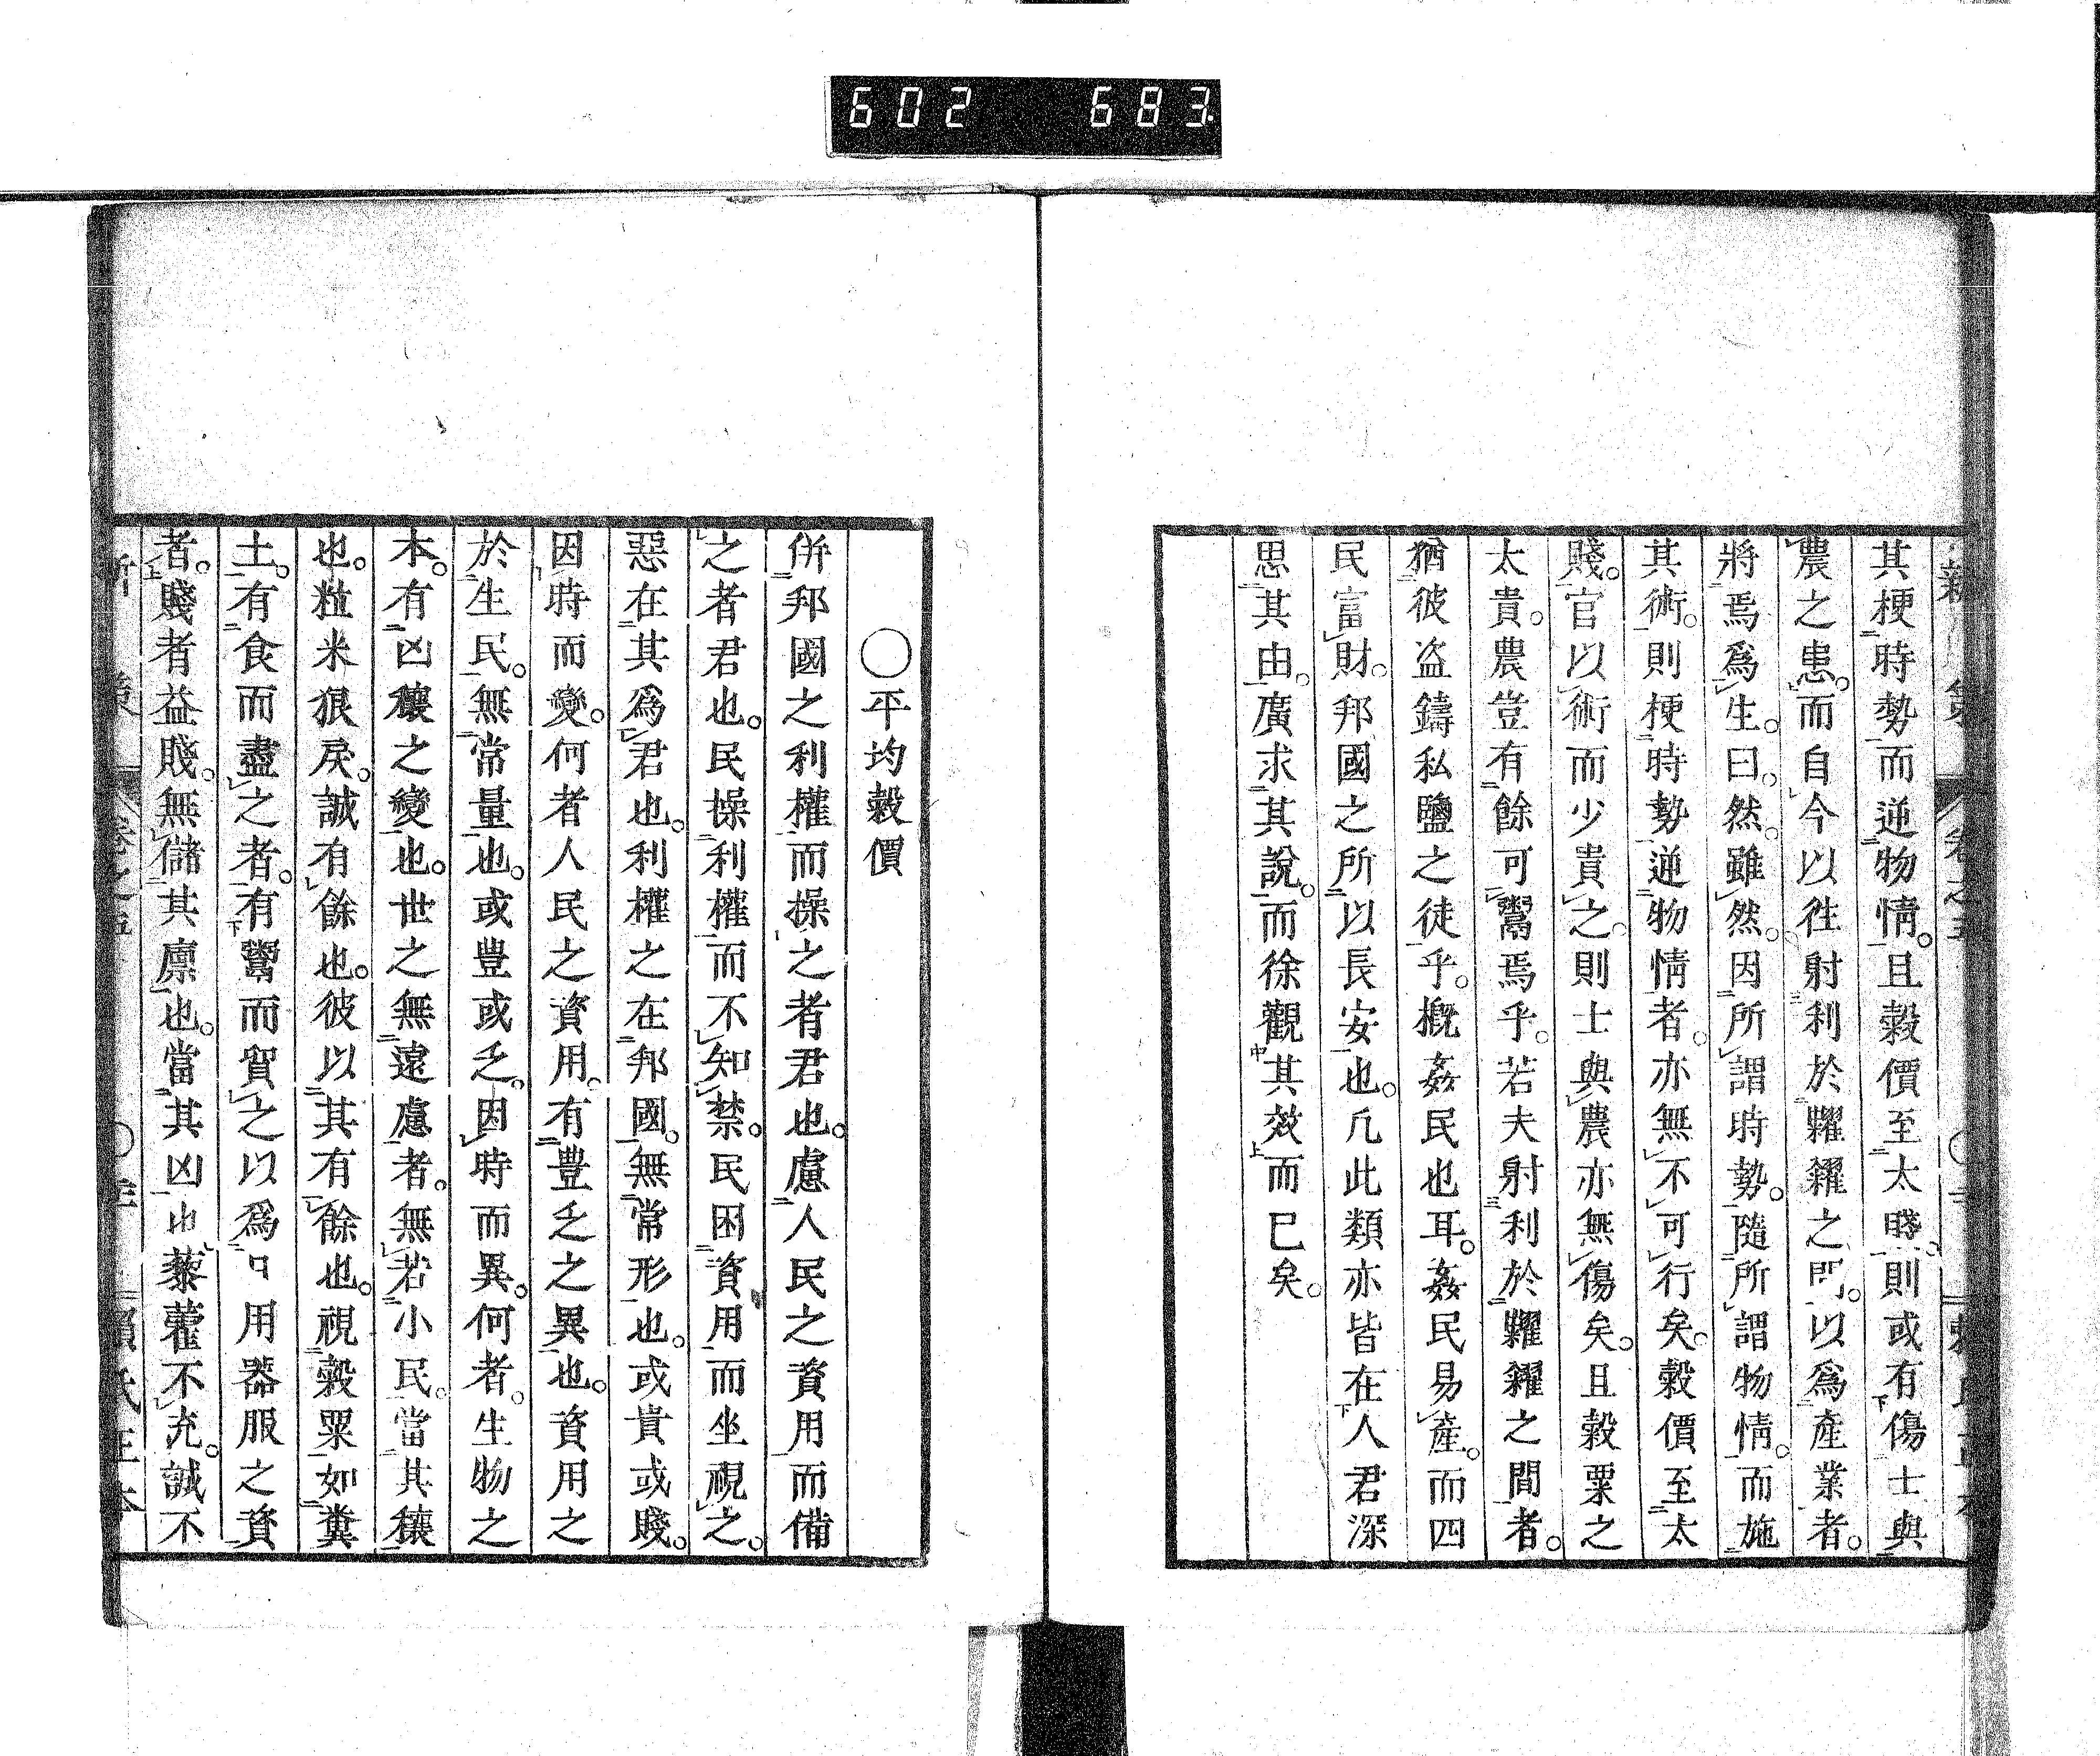 602 683.
其梗時勢而逆物情。且穀價至太賤。則或有傷士與
農之患。而自今以徃射利於糶糴之門。以爲產業者。
將焉爲生。曰。然。雖然。因所謂時勢。隨所謂物情。而施
其術。則梗時勢逆物情者。亦無不可行矣。穀價至太
賤。官以術而少貴之。則士與農亦無傷矣。且穀粟之
太貴。農豈有餘可鬻焉乎。若夫射利於糶糴之間者。
猶彼盜鑄私鹽之徒乎。概姦民也耳。姦民易產。而四
民富財。邦國之所以長安也。凡此類亦皆在人君深
思其由。廣求其說。而徐觀其效而已矣。
〇平均穀價
併邦國之利權而操之者君也。慮人民之資用而備
之者君也。民操利權而不知禁。民困資用而坐視之。
惡在其爲君也。利權之在邦國。無常形也。或貴或賤。
因時而變。何者人民之資用。有豊乏之異也。資用之
於生民。無常量也。或豊或乏。因時而異。何者。生物之
本。有凶穰之變也。世之無遠慮者。無若小民。當其穰
也。粒米狼戾。誠有餘也。彼以其有餘也。視穀粟如糞
土。有食而盡之者。有鬻而貿之以爲日用器服之資
者。賤者益賤。無儲其廩也。當其凶也藜藿不充。誠不
卷之五
賴氏正本